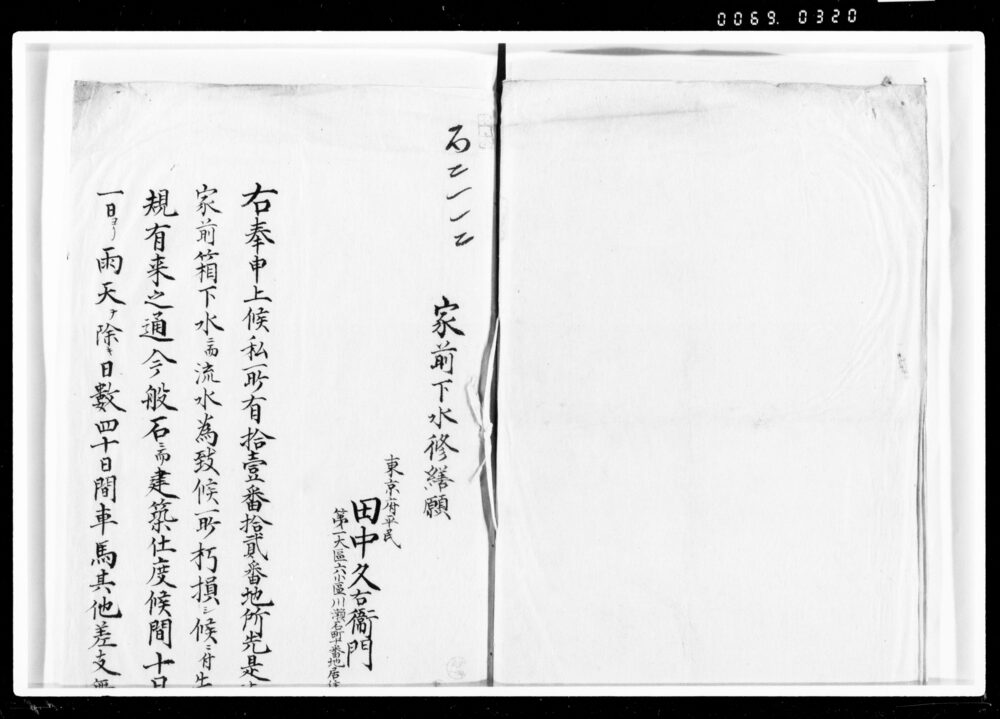 0069. 0320
家前下水修繕願
東京府平民
田中久右衞門
第一大區六小區川瀬石町十番地居住
右奉申上候私所有拾壹番拾貳番地所先是
家前箱下水ニ而流水為致候所朽損シ候ニ付
規有来之通今般石ニ而建築仕度候間十
一日ヨリ雨天ヲ除キ日數四十日間車馬其他差支無